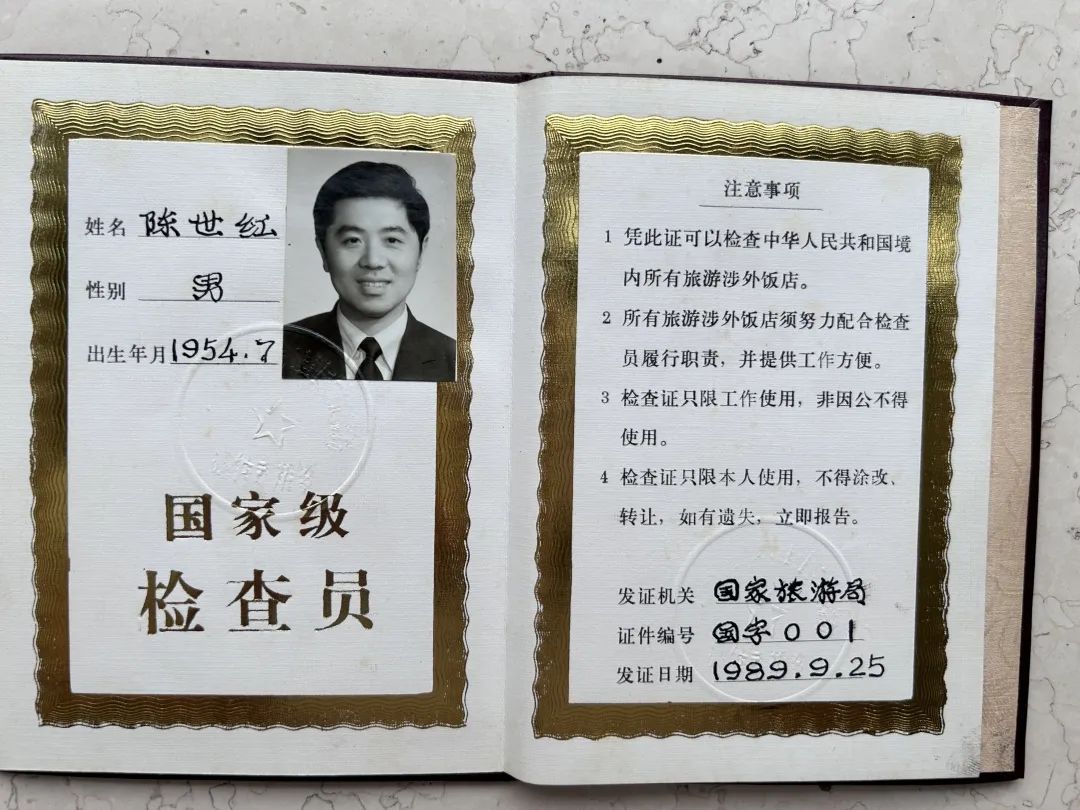 姓名 陈世红
性别 男
出生年月 1954.7
国家级
检查员
注意事项
1 凭此证可以检查中华人民共和国境
内所有旅游涉外饭店。
2 所有旅游涉外饭店须努力配合检查
员履行职责，并提供工作方便。
3 检查证只限工作使用，非因公不得
使用。
4 检查证只限本人使用，不得涂改、
转让，如有遗失，立即报告。
发证机关 国家旅游局
证件编号 国字001
发证日期 1989.9.25